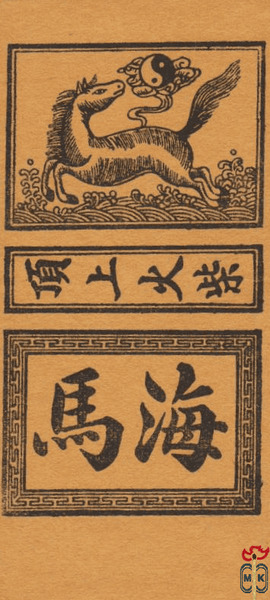 頂上火柴
海馬
MK